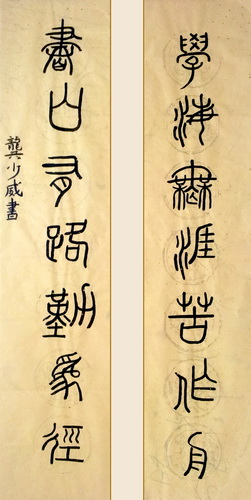 學海無涯苦作舟
書山有路勤為徑
龔少威書